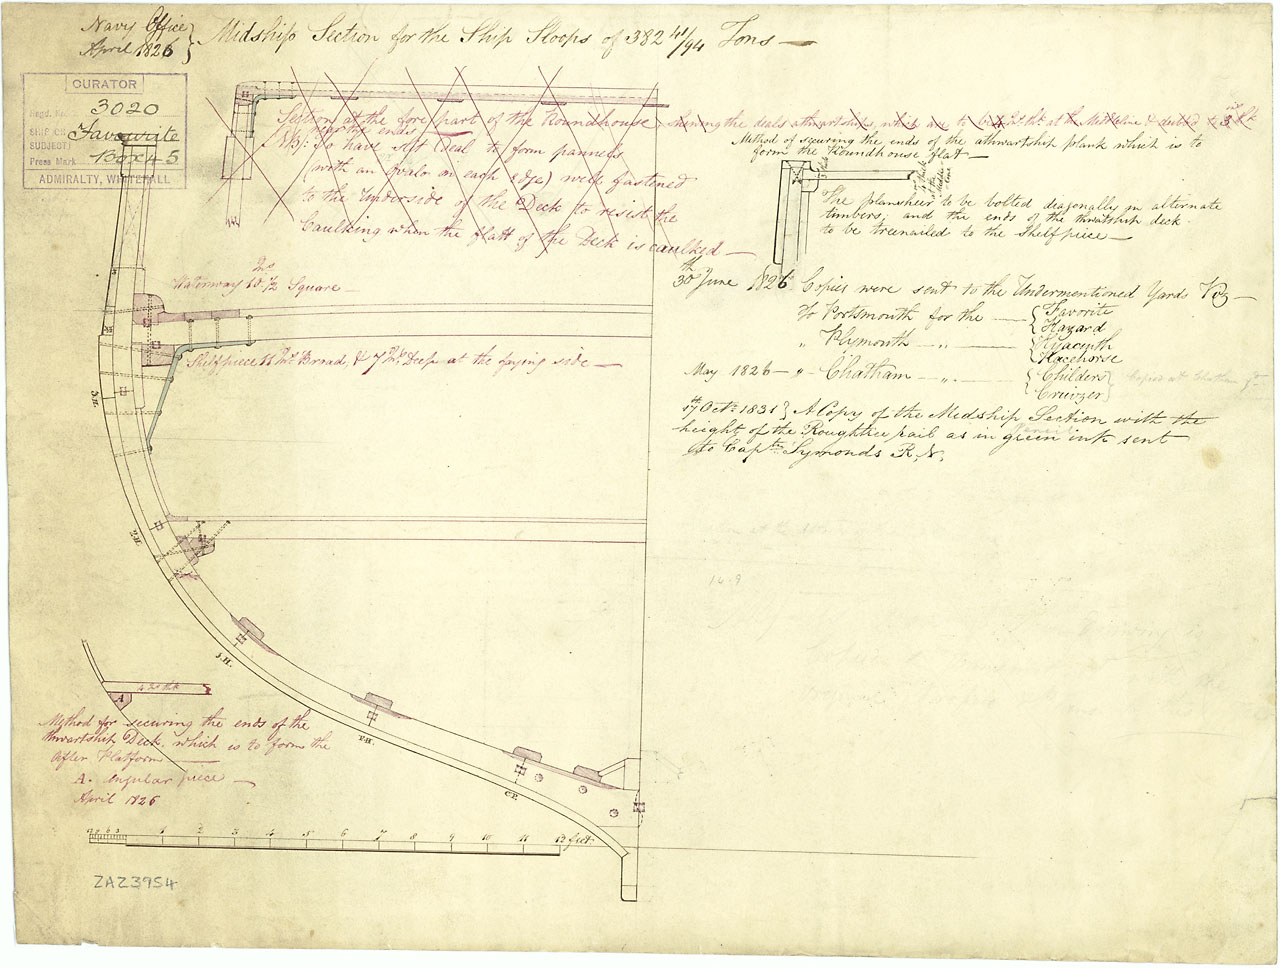 Navy Office
April 1826
Midship Section for the Ship Sloops of 382 41/94 Tons
CURATOR
Regd. No. 3020
SHIP OR SUBJECT: Favourite
Press Mark Box 45
ADMIRALTY, WHITEHALL
Section at the fore part of the Roundhouse shewing the deals athwartships, which are to be
near the ends
NB: To have slit Deal to form pannels
(with an Ovalo on each edge) well fastened
to the Underside of the Deck to resist the
Caulking when the flatt of the Deck is caulked
Method of securing the ends of the athwartship plank which is to
form the Roundhouse flat
The plansheer to be bolted diagonally in alternate
timbers; and the ends of the thwartship deck
to be treenailed to the Shelfpiece
30th June 1826 Copies were sent to the Undermentioned Yards Viz
To Portsmouth for the Favorite
Hazard
" Plymouth " Hyacinth
Racehorse
May 1826 " Chatham " Childers
Cruizer
Copied at Chatham
17th Octr 1831 } A Copy of the Midship Section with the
height of the Roughtree rail as in green ink sent
to Captn Symonds R.N.
Waterway 10 1/2 Ins Square
Shelfpiece 11 Ins Broad, & 7 Ins Deep at the faying side
3.H.
2.H.
1.H.
F.H.
16.9
A
Method for securing the ends of the
thwartship Deck, which is to form the
After Platform
A. angular piece
April 1826
12 9 6 3 1 2 3 4 5 6 7 8 9 10 11 12 feet
ZAZ3954